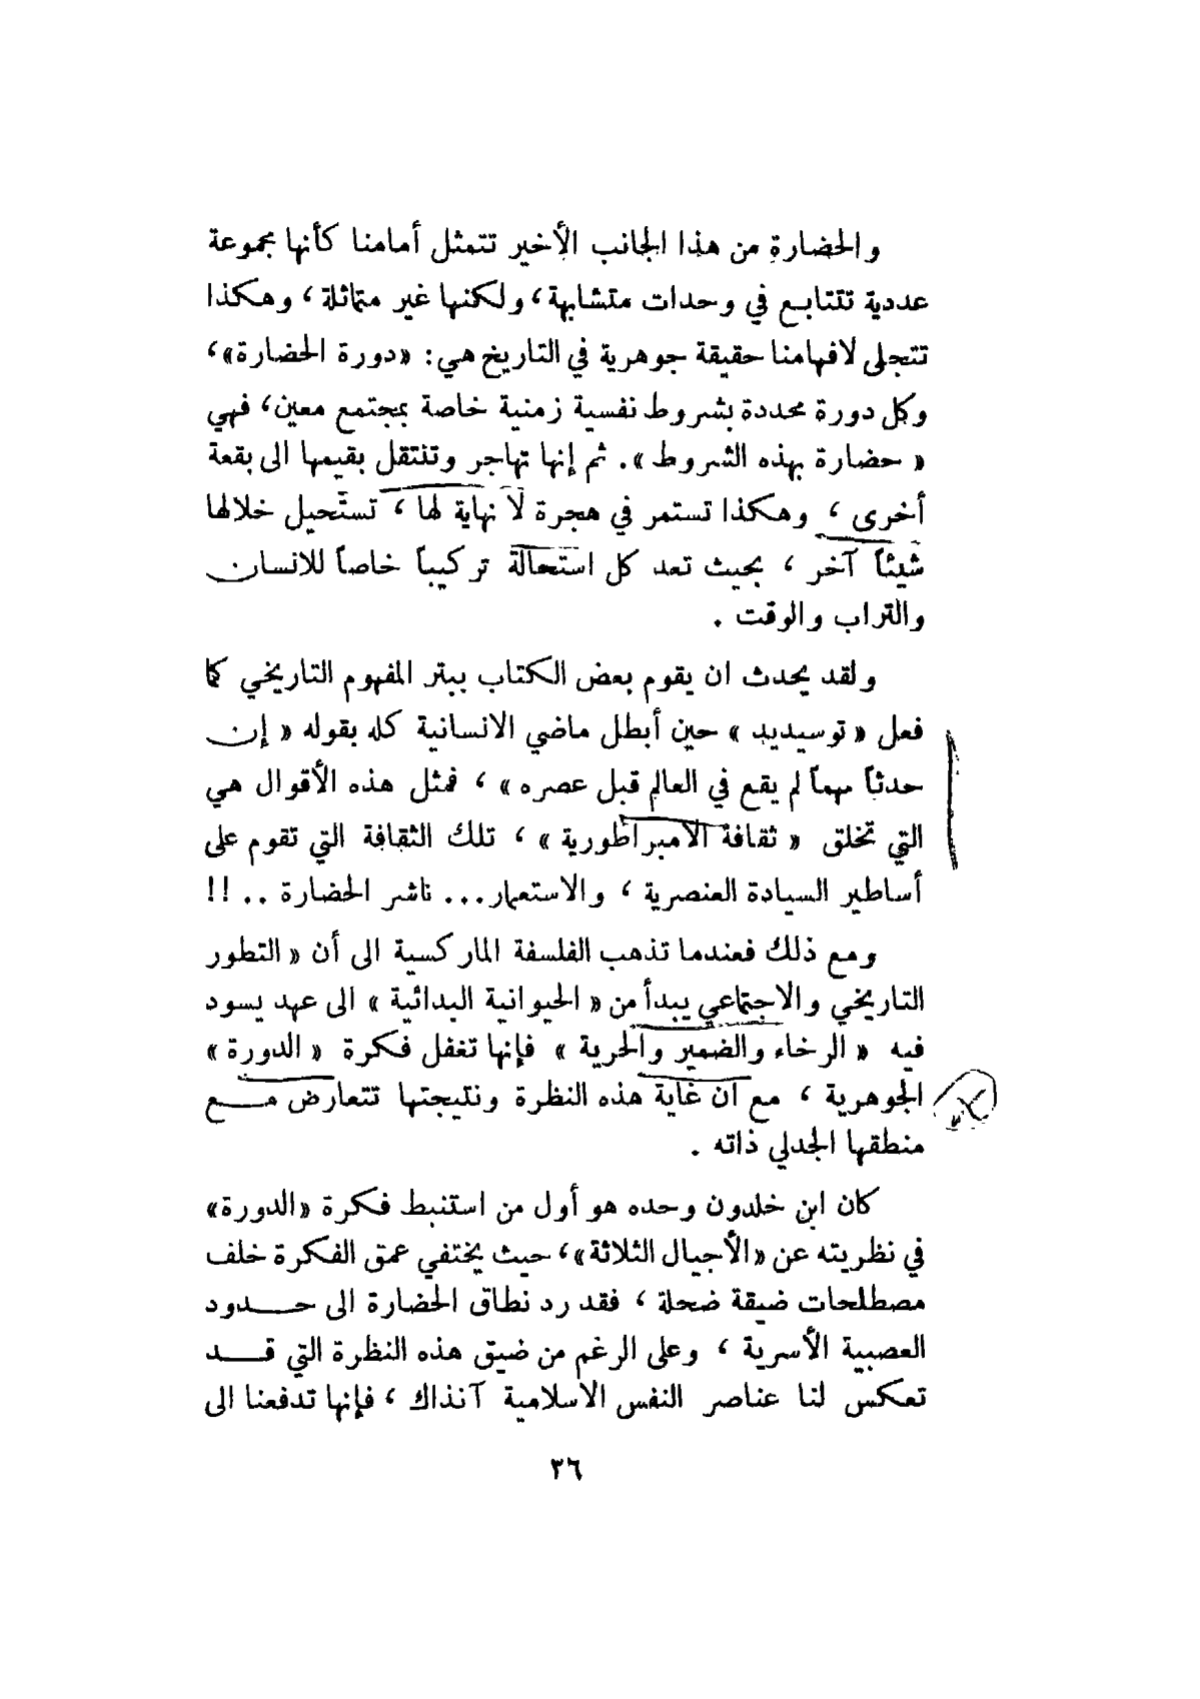 والحضارة من هذا الجانب الأخير تتمثل أمامنا كأنها مجموعة
عددية تتتابع في وحدات متشابهة، ولكنها غير متماثلة، وهكذا
تتجلى لافهامنا حقيقة جوهرية في التاريخ هي: «دورة الحضارة»،
وكل دورة محددة بشروط نفسية زمنية خاصة بمجتمع معين، فهي
« حضارة بهذه الشروط ». ثم إنها تهاجر وتنتقل بقيمها الى بقعة
أخرى ، وهكذا تستمر في هجرة لا نهاية لها ، تستحيل خلالها
شيئاً آخر ، بحيث تعد كل استحالة تركيباً خاصاً للانسان
والتراب والوقت .
ولقد يحدث ان يقوم بعض الكتاب ببتر المفهوم التاريخي كما
فعل « توسيديد » حين أبطل ماضي الانسانية كله بقوله « إن
حدثاً مهماً لم يقع في العالم قبل عصره » ، فمثل هذه الأقوال هي
التي تخلق « ثقافة الامبراطورية » ، تلك الثقافة التي تقوم على
أساطير السيادة العنصرية ، والاستعمار... ناشر الحضارة .. !!
ومع ذلك فعندما تذهب الفلسفة الماركسية الى أن « التطور
التاريخي والاجتماعي يبدأ من « الحيوانية البدائية » الى عهد يسود
فيه « الرخاء والضمير والحرية » فإنها تغفل فكرة « الدورة »
الجوهرية ، مع ان غاية هذه النظرة ونتيجتها تتعارض مـــع
منطقها الجدلي ذاته .
كان ابن خلدون وحده هو أول من استنبط فكرة «الدورة»
في نظريته عن «الأجيال الثلاثة»، حيث يختفي عمق الفكرة خلف
مصطلحات ضيقة ضحلة ، فقد رد نطاق الحضارة الى حـــدود
العصبية الأسرية ، وعلى الرغم من ضيق هذه النظرة التي قـــد
تعكس لنا عناصر النفس الاسلامية آنذاك ، فإنها تدفعنا الى
٢٦